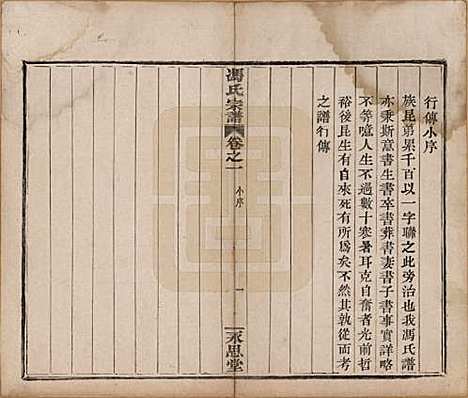 行傳小序
族昆弟累千百以一字聯之此旁治也我馮氏譜
亦秉斯意書生書卒書葬書妻書子書事實詳略
不等噫人生不過數十寒暑耳克自奮者光前哲
裕後昆生有自來死有所為矣不然其孰從而考
之譜行傳
馮氏宗譜
卷之一
小序
一
永思堂